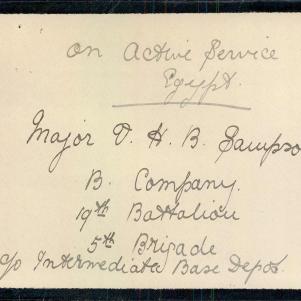 On Active Service
Egypt.
Major V. H. B. Sampso
B. Company.
19th Battalion
5th Brigade
c/o Intermediata Base Depot.